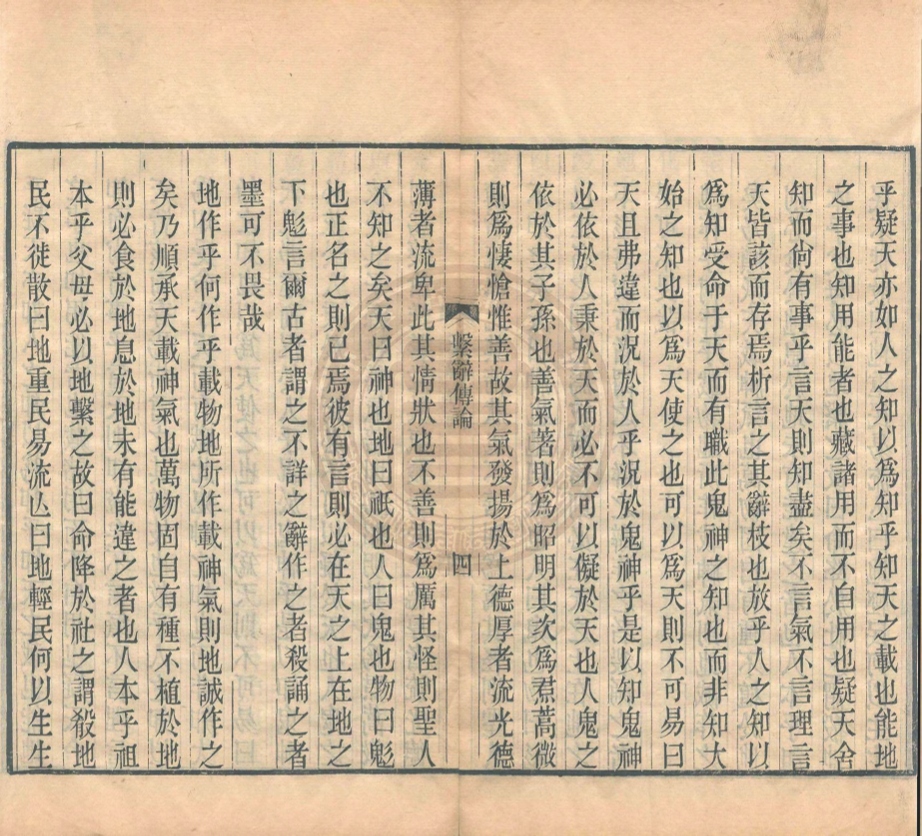 乎疑天亦如人之知以爲知乎知天之載也能地
之事也知用能者也藏諸用而不自用也疑天舍
知而尙有事乎言天則知盡矣不言氣不言理言
天皆該而存焉析言之其辭枝也放乎人之知以
爲知受命于天而有職此鬼神之知也而非知大
始之知也以爲天使之也可以爲天則不可易曰
天且弗違而況於人乎況於鬼神乎是以知鬼神
必依於人秉於天而必不可以儗於天也人鬼之
依於其子孫也善氣著則爲昭明其次爲焄蒿微
則爲悽愴惟善故其氣發揚於上德厚者流光德
繫辭傳論
四
薄者流卑此其情狀也不善則爲厲其怪則聖人
不知之矣天曰神也地曰祇也人曰鬼也物曰鬽
也正名之則已焉彼有言則必在天之上在地之
下鬽言爾古者謂之不詳之辭作之者殺誦之者
墨可不畏哉
地作乎何作乎載物地所作載神氣則地誠作之
矣乃順承天載神氣也萬物固自有種不植於地
則必食於地息於地未有能違之者也人本乎祖
本乎父母必以地繫之故曰命降於社之謂殽地
民不徙散曰地重民易流亾曰地輕民何以生生